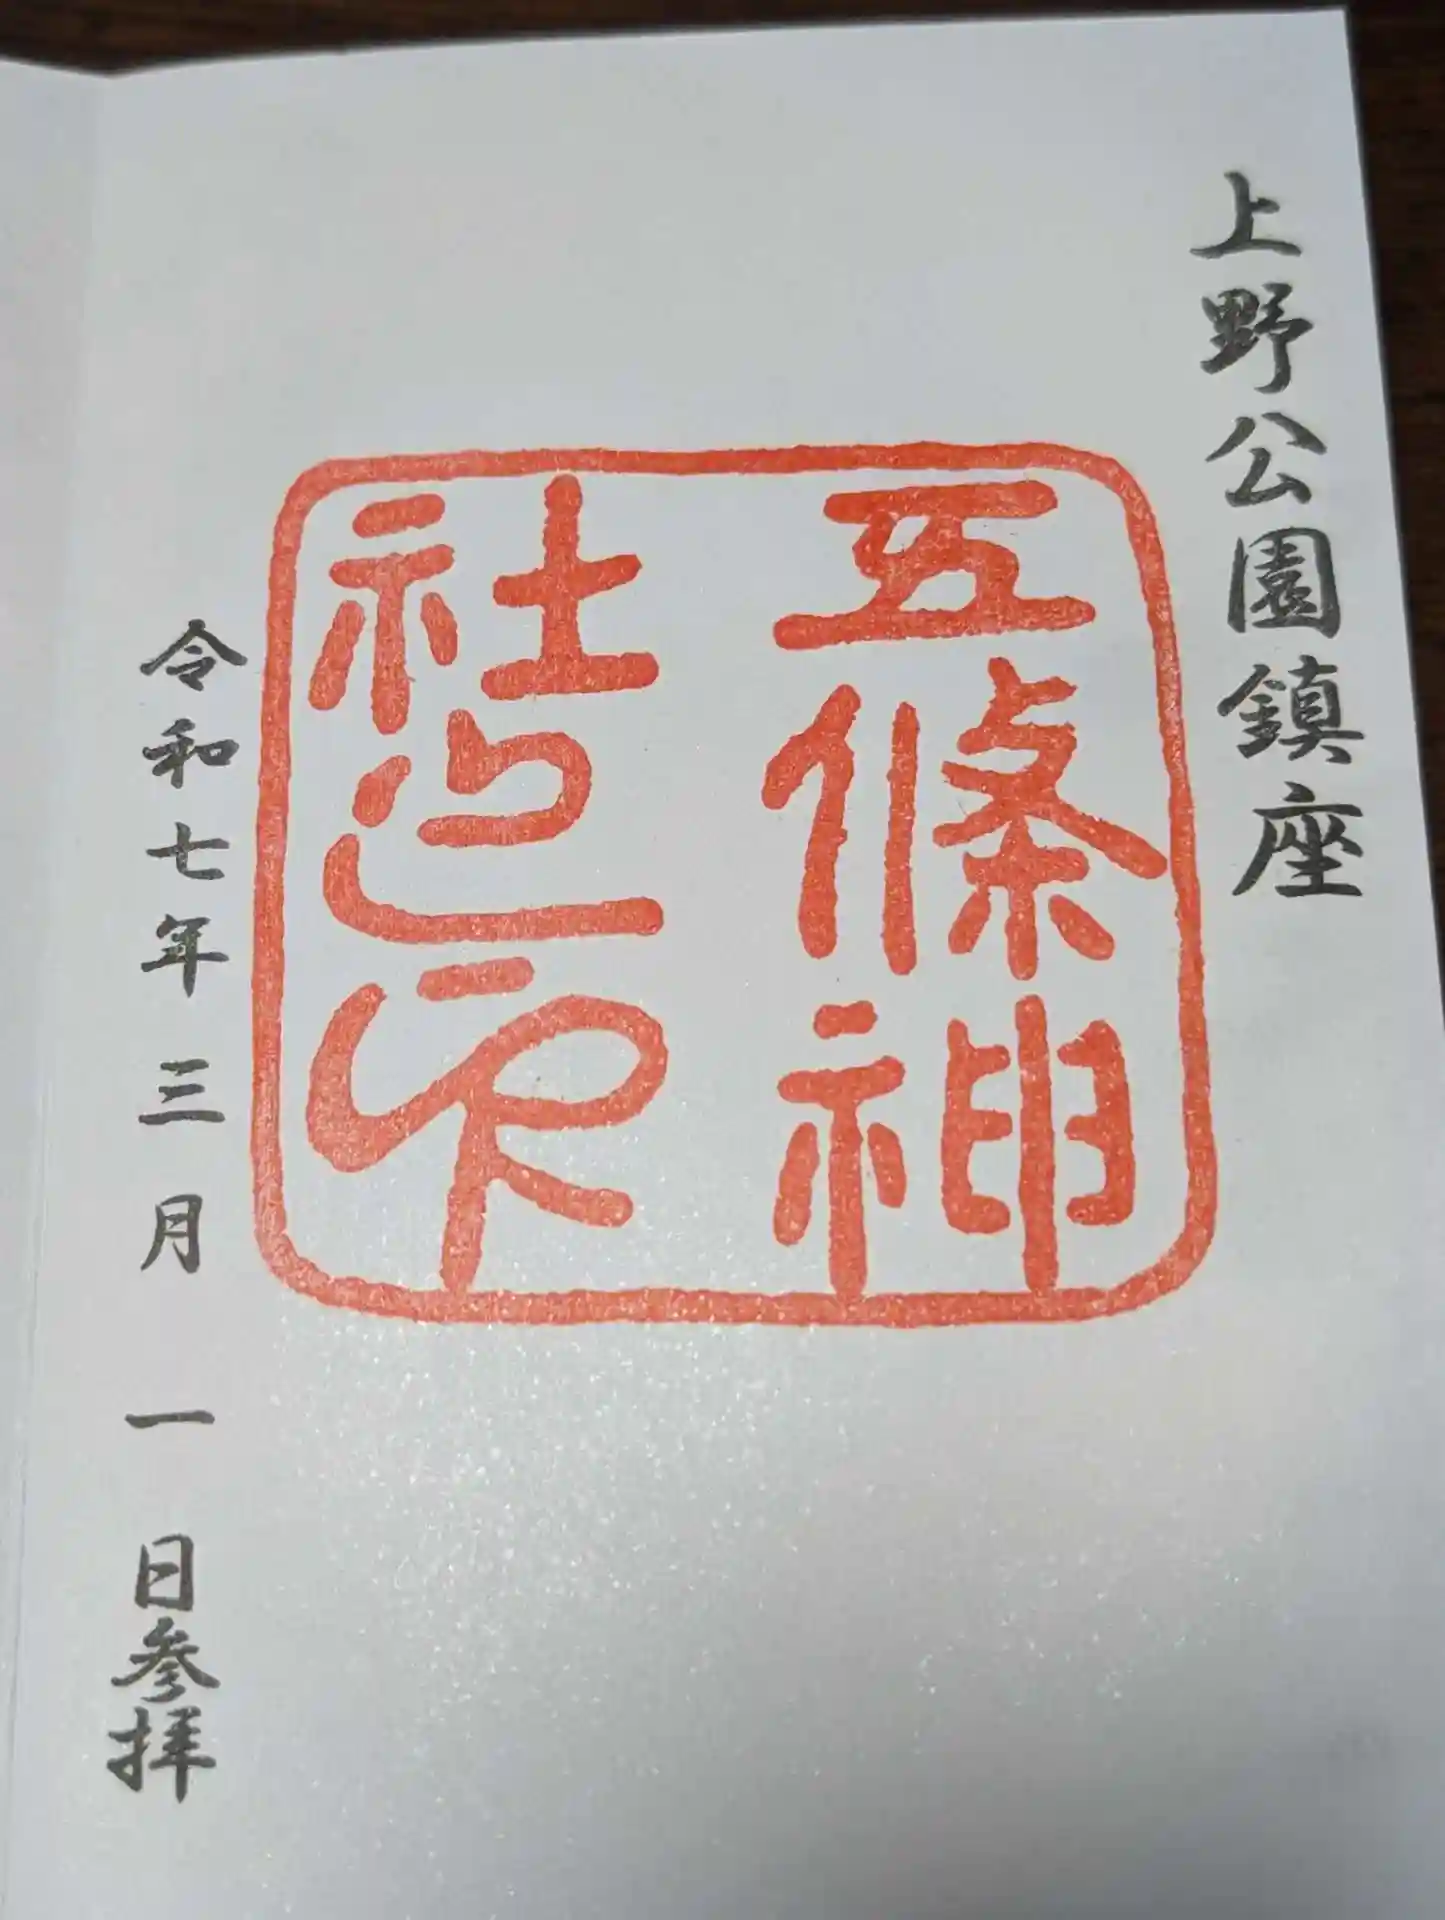 上野公園鎮座
五條神
社之印
令和七年三月一日参拝